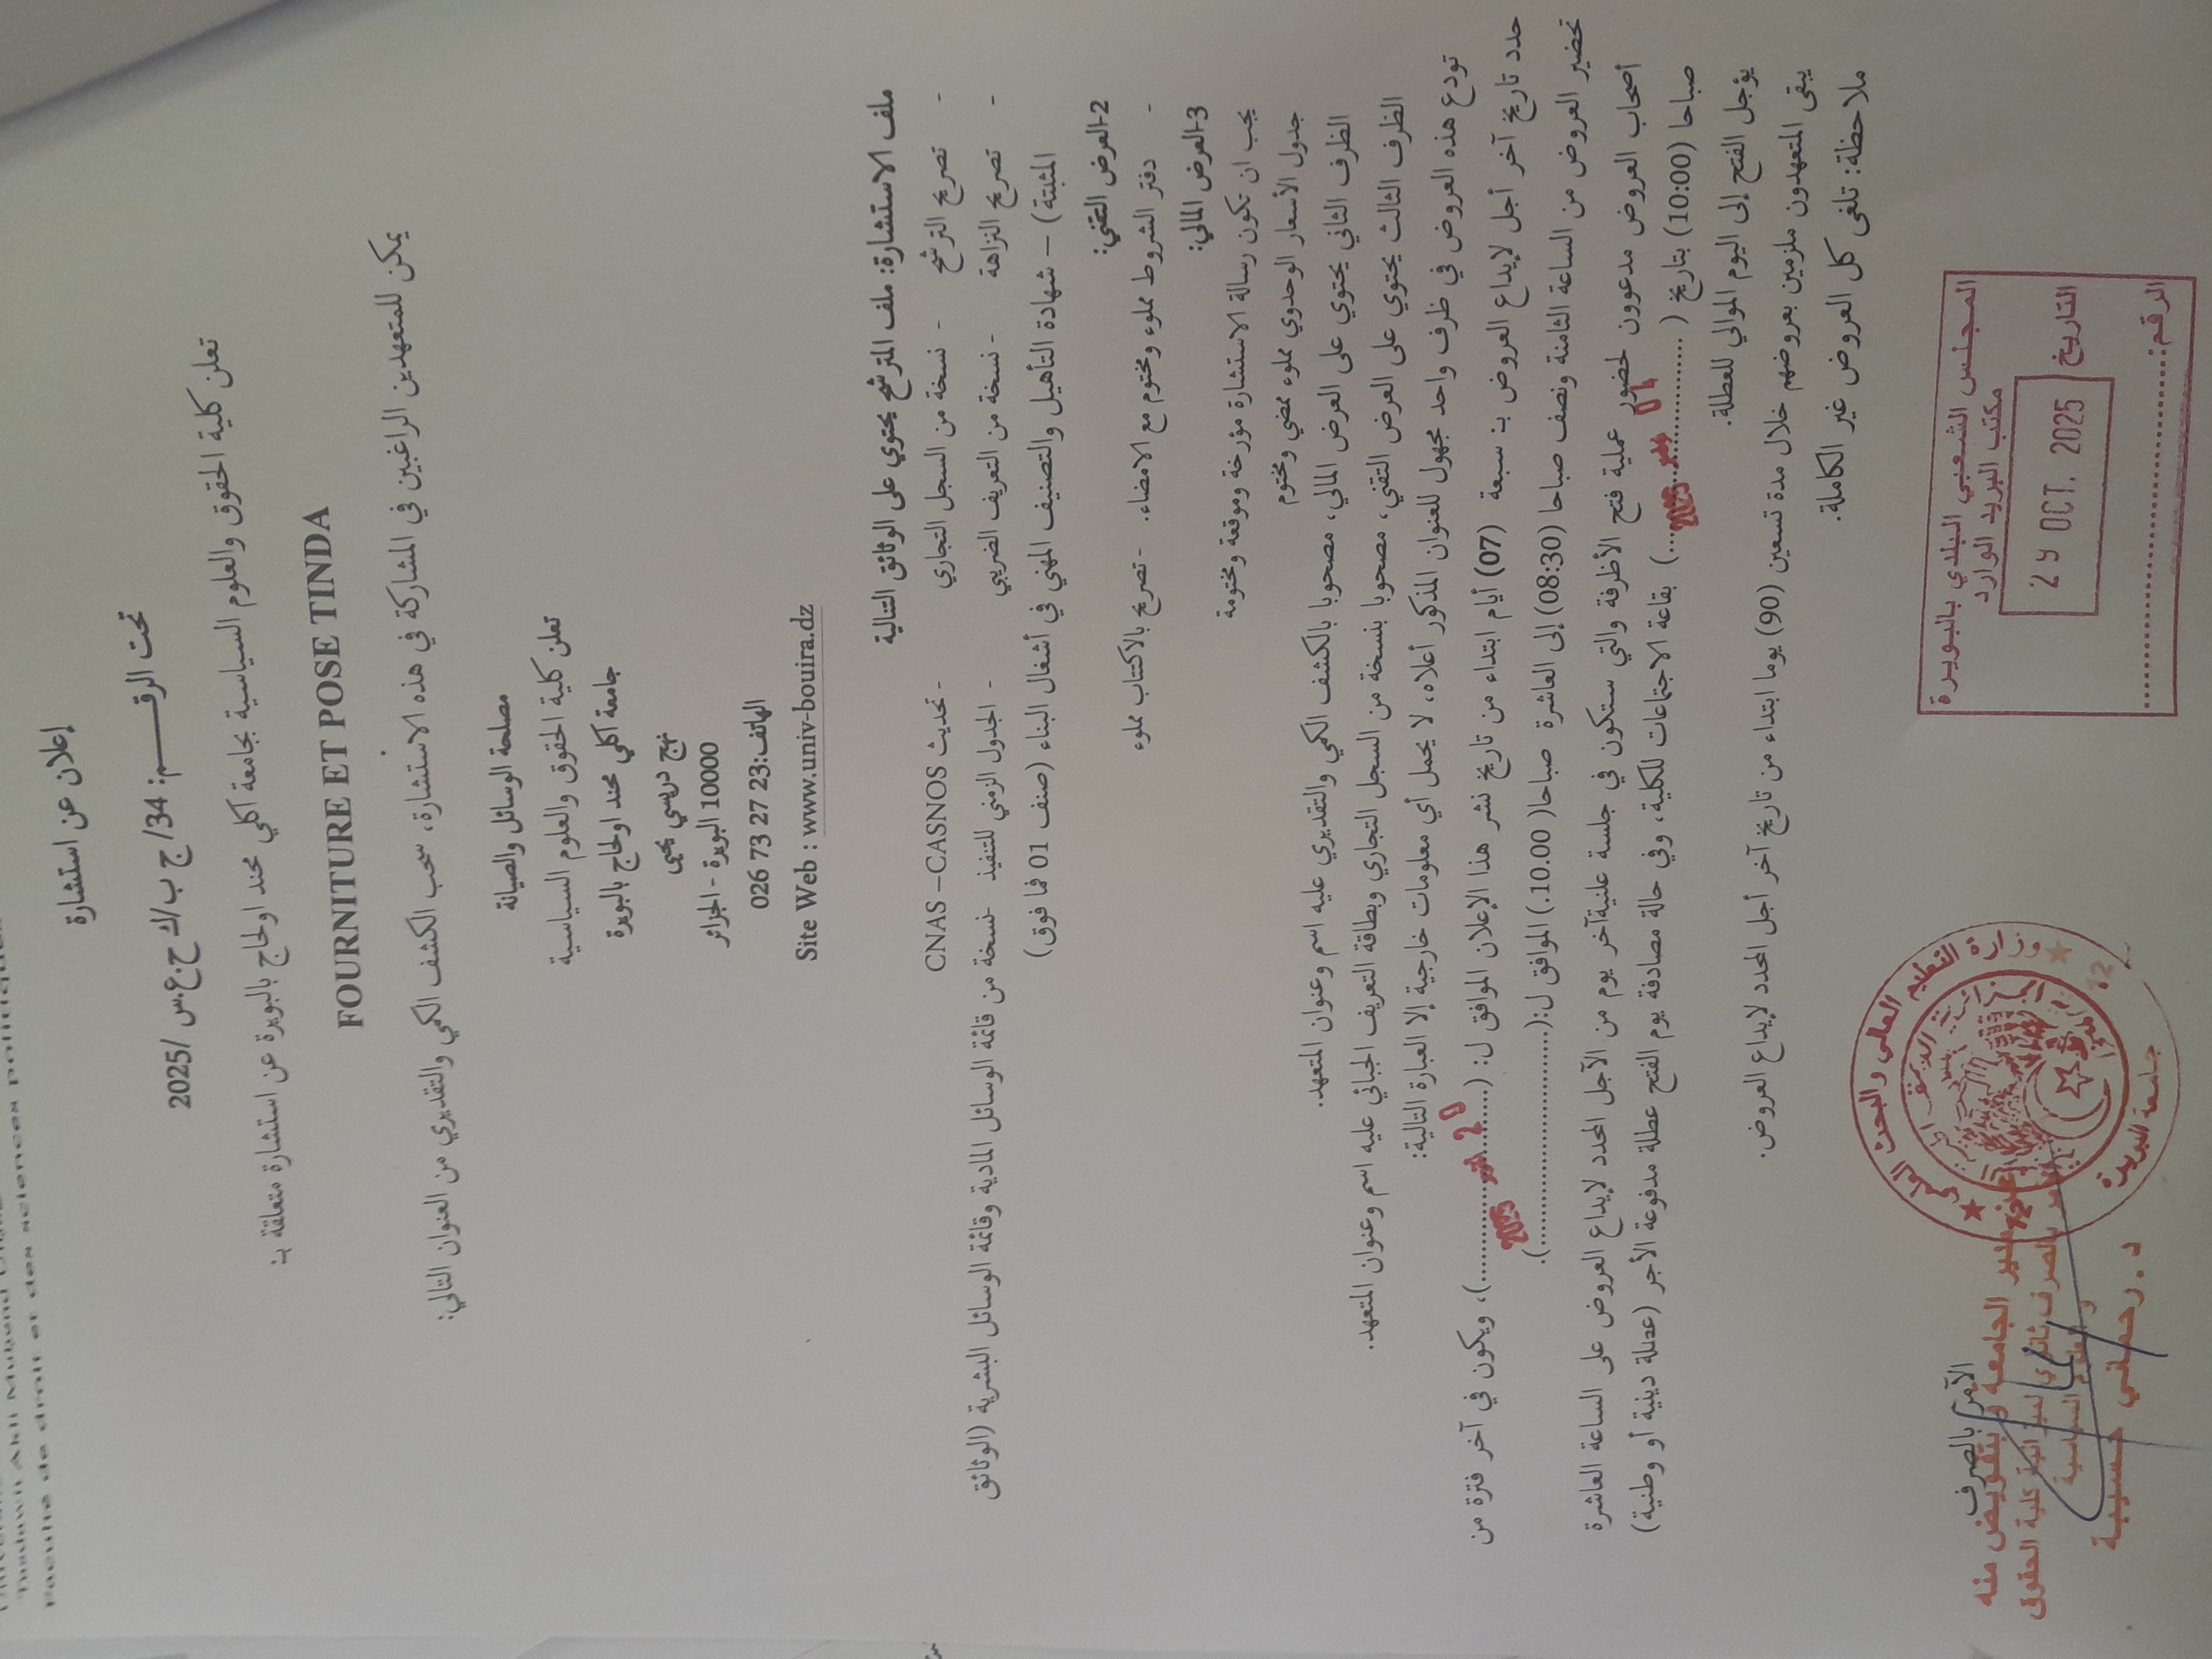 Faculté de droit et des sciences politiques
إعلان عن استشارة
تحت الرقــــم: 34/ ج ب/ك ح.ع.س /2025
تعلن كلية الحقوق والعلوم السياسية بجامعة آكلي محند اولحاج بالبويرة عن استشارة متعلقة بـ:
FOURNITURE ET POSE TINDA
يمكن للمتعهدين الراغبين في المشاركة في هذه الاستشارة، سحب الكشف الكمي والتقديري من العنوان التالي:
مصلحة الوسائل والصيانة
تعلن كلية الحقوق والعلوم السياسية
جامعة آكلي محند اولحاج بالبويرة
نهج دريسي يحيى
10000 البويرة - الجزائر
الهاتف:23 27 73 026
Site Web : www.univ-bouira.dz
ملف الاستشارة: ملف المترشح يحتوي على الوثائق التتالية
- تصريح الترشح - نسخة من السجل التجاري - تحديث CNAS –CASNOS
- تصريح النزاهة -نسخة من التعريف الضريبي - الجدول الزمني للتنفيذ -نسخة من قائمة الوسائل المادية وقائمة الوسائل البشرية (الوثائق
المثبتة) – شهادة التأهيل والتصنيف المهني في أشغال البناء (صنف 01 فما فوق)
2-العرض التقني:
- دفتر الشروط مملوء ومختوم مع الامضاء. -تصريح بالاكتاب مملوء
3-العرض المالي:
يجب ان تكون رسالة الاستشارة مؤرخة وموقعة ومختومة
جدول الأسعار الوحدوي مملوء ممضي ومختوم
الظرف الثاني يحتوي على العرض المالي، مصحوبا بالكشف الكمي والتقديري عليه اسم وعنوان المتعهد.
الظرف الثالث يحتوي على العرض التقني، مصحوبا بنسخة من السجل التجاري وبطاقة التعريف الجبائي عليه اسم وعنوان المتعهد.
تودع هذه العروض في ظرف واحد مجهول للعنوان المذكور أعلاه، لا يحمل أي معلومات خارجية إلا العبارة التالية:
حدد تاريخ آخر أجل لإيداع العروض بـ: سبعة (07) أيام ابتداء من تاريخ نشر هذا الإعلان الموافق لـ: (.......... 2025 ..........)، ويكون في آخر فترة من
تحضير العروض من الساعة الثامنة ونصف صباحا (08:30) إلى العاشرة صباحا( 10.00.) الموافق لـ:(..............................).
أصحاب العروض مدعوون لحضور عملية فتح الأظرفة والتي ستكون في جلسة علنيةآخر يوم من الآجل المحدد لإيداع العروض على الساعة العاشرة
صباحا (10:00) بتاريخ (.......... 2025 ..........) بقاعة الاجتماعات للكلية، وفي حالة مصادفة يوم الفتح عطلة مدفوعة الأجر (عطلة دينية أو وطنية)
يؤجل الفتح إلى اليوم الموالي للعطلة.
يبقى المتعهدون ملزمين بعروضهم خلال مدة تسعين (90) يوما ابتداء من تاريخ آخر أجل المحدد لإيداع العروض.
ملاحظة: تلغى كل العروض غير الكاملة.
المجلس الشعبي البلدي بالبويرة
مكتب البريد الوارد
التاريخ 29 OCT. 2025
الرقم:..............................
وزارة التعليم العالي والبحث العلمي
جامعة البويرة
الآمر بالصرف
مدير الجامعة وبتفويض منه
الآمر بالصرف ثانوي لميزانية كلية الحقوق
والعلوم السياسية
د. رحماني حسيبة